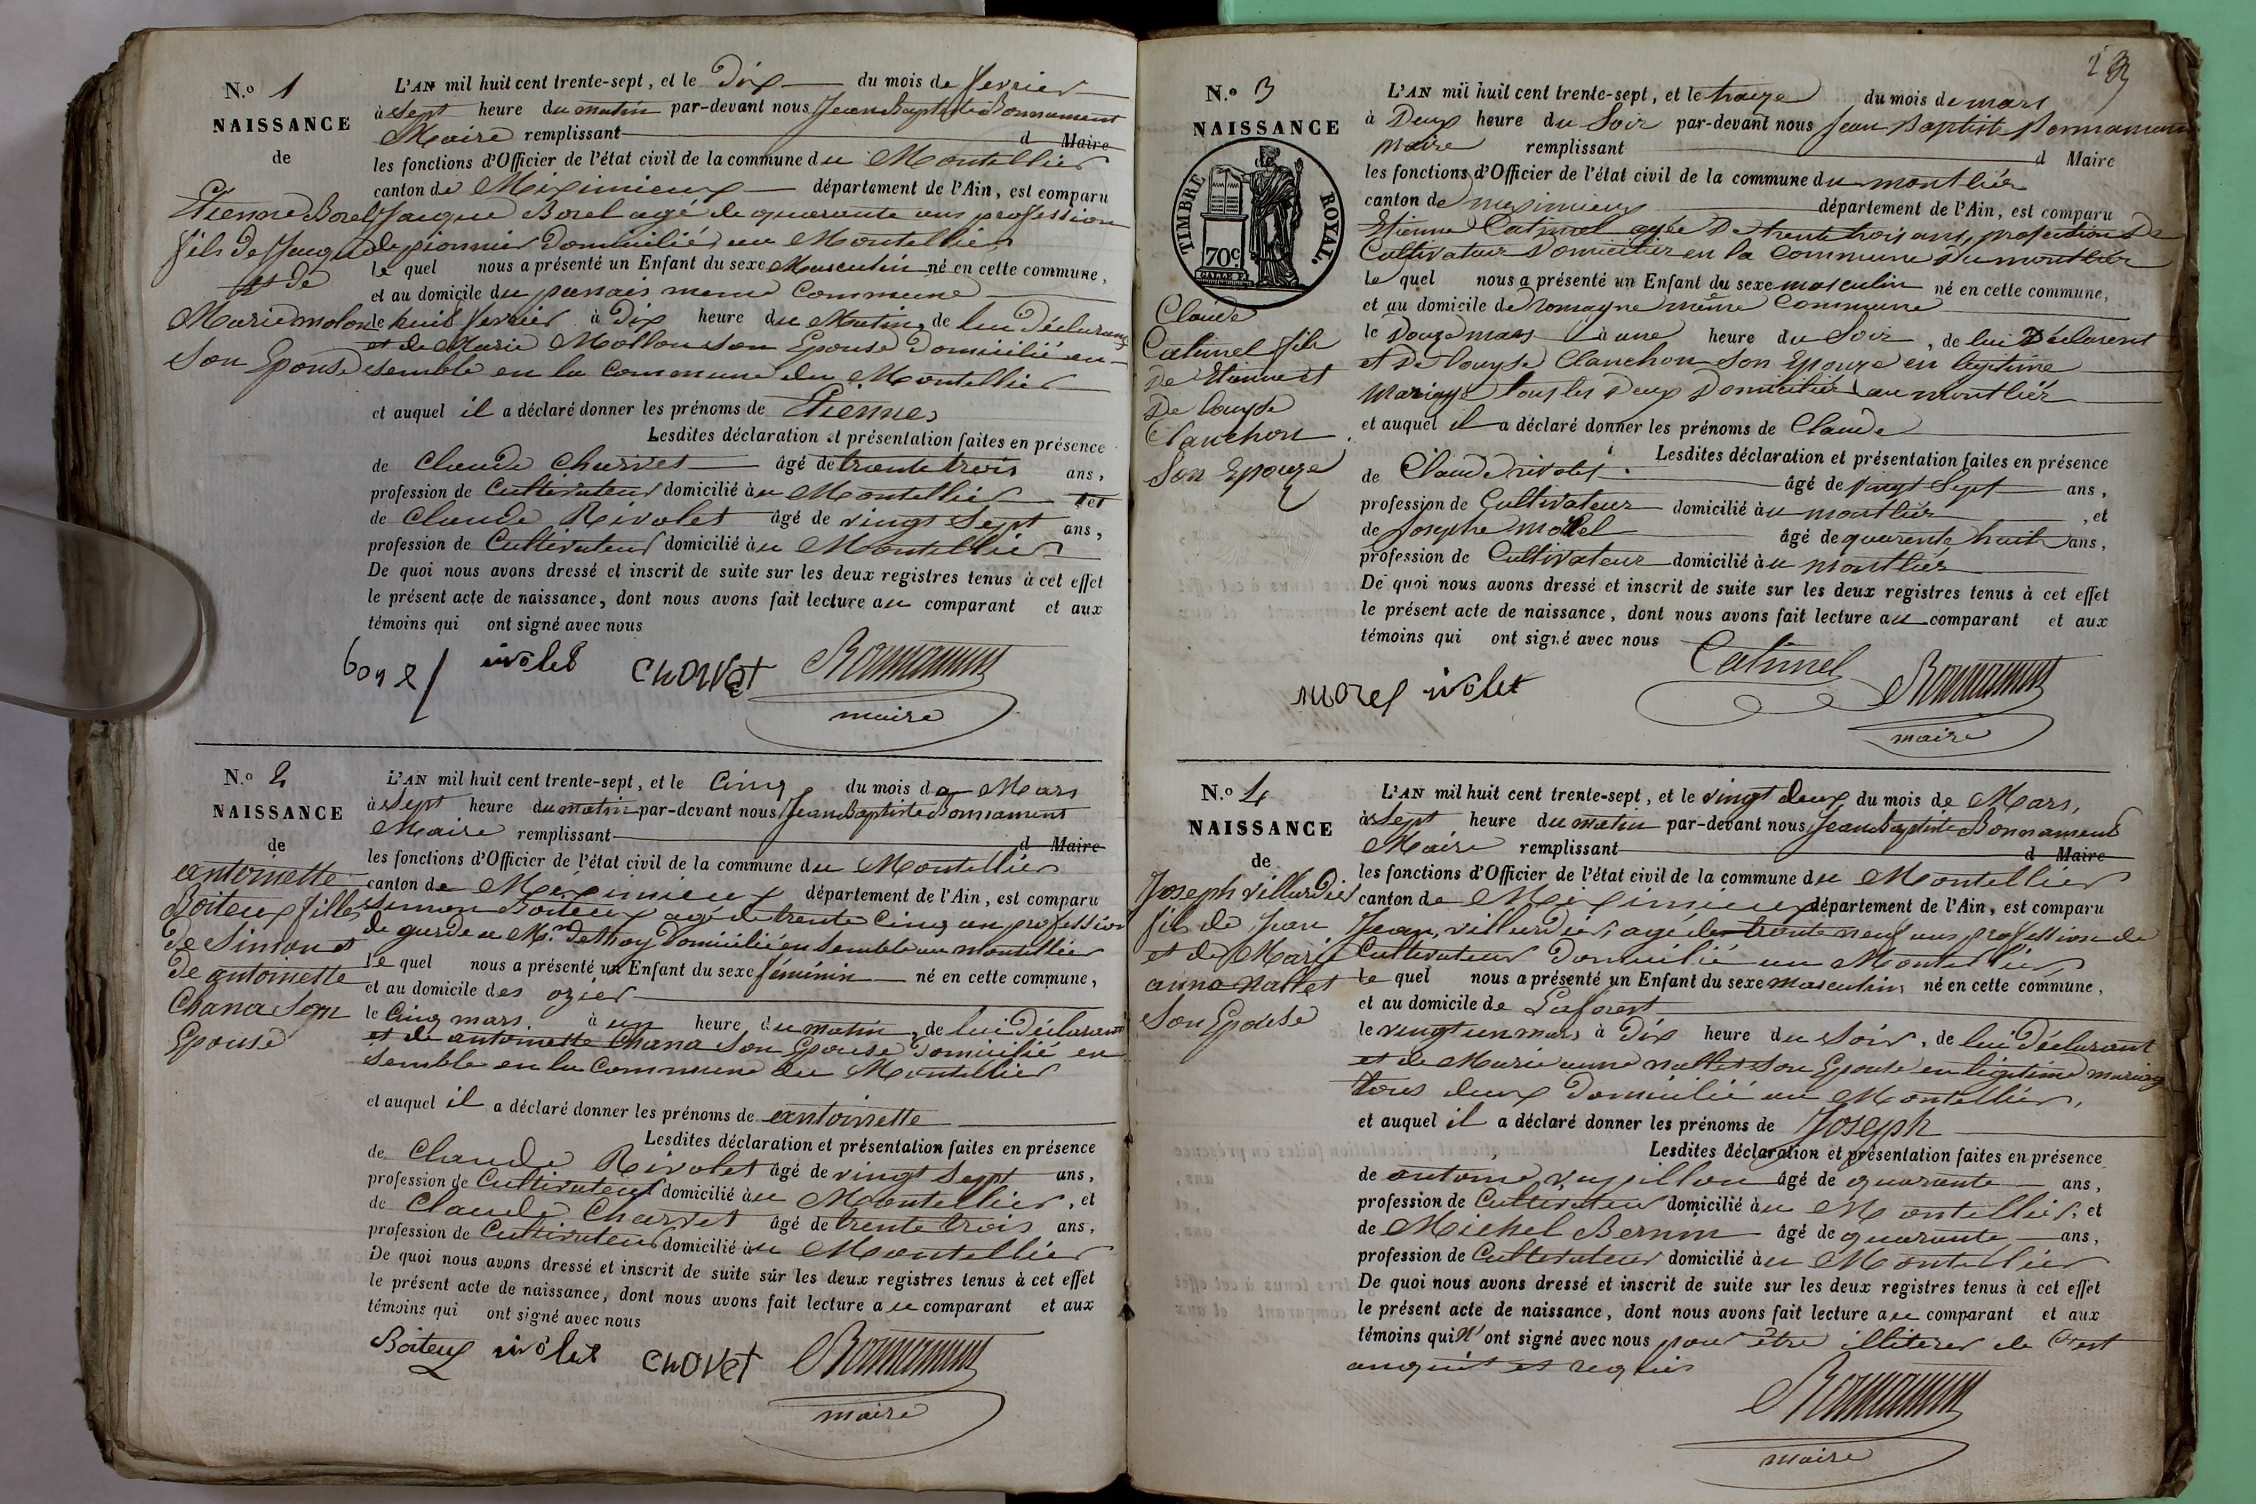 N.o 1
NAISSANCE
de
Etienne Borel
fils de Jaque
et de
Marie molon
Son Epouse
L'AN mil huit cent trente-sept, et le Dix du mois de fevrier
à sept heure du matin par-devant nous Jean Baptiste Bonnament
Maire remplissant d Maire
les fonctions d'Officier de l'état civil de la commune du Montellier
canton de Miximieux département de l'Ain, est comparu
Jaque Borel agé de quarante ans profession
de pionnier Domicilié au Montellier
le quel nous a présenté un Enfant du sexe Masculin né en cette commune,
et au domicile du panais meme Commune
le huit fevrier à Dix heure du Matin, de lui Déclarant
et de Marie Mollon son Epouse Domicilié en
semble en la Commune du Montellier
et auquel il a déclaré donner les prénoms de Etienne,
Lesdites déclaration et présentation faites en présence
de Claude Charvet âgé de trente trois ans,
profession de Cultivateur domicilié au Montellier et
de Claude Rivolet âgé de vingt Sept ans,
profession de Cultivateur domicilié au Montellier
De quoi nous avons dressé et inscrit de suite sur les deux registres tenus à cet effet
le présent acte de naissance, dont nous avons fait lecture au comparant et aux
témoins qui ont signé avec nous
borel rivolet Chorvet Bonnament
maire
N.o 2
NAISSANCE
de
antoinette
Boiteux fille
de Simon et
de antoinette
Chana Son
Epouse
L'AN mil huit cent trente-sept, et le Cinq du mois de Mars
à Sept heure du matin par-devant nous Jean Baptiste Bonnament
Maire remplissant d Maire
les fonctions d'Officier de l'état civil de la commune du Montellier
canton de Meximieux département de l'Ain, est comparu
Simon Boiteux agé de trente Cinq an profession
de garde a Mr. domicilié en semble au montellier
le quel nous a présenté un Enfant du sexe féminin né en cette commune,
et au domicile des ozier
le Cinq mars à un heure du matin, de lui Déclarant
et de antoinette Chana Son Epouse Domicilié en
semble en la Commune du Montellier
et auquel il a déclaré donner les prénoms de antoinette
Lesdites déclaration et présentation faites en présence
de Claude Rivolet âgé de vingt Sept ans,
profession de Cultivateur domicilié au Montellier, et
de Claude Charvet âgé de trente trois ans,
profession de Cultivateur domicilié au Montellier
De quoi nous avons dressé et inscrit de suite sur les deux registres tenus à cet effet
le présent acte de naissance, dont nous avons fait lecture au comparant et aux
témoins qui ont signé avec nous
Boiteux rivolet Chovet Bonnament
maire
N.o 3
NAISSANCE
TIMBRE ROYAL.
70c.
Claude
Catinel fils
De Etienne et
De Louyse
Clanchon
Son Epouze
L'AN mil huit cent trente-sept, et le traize du mois de mars
à Deux heure du Soir par-devant nous Jean Baptiste Bonnament
maire remplissant d Maire
les fonctions d'Officier de l'état civil de la commune du montlier
canton de meximieux département de l'Ain, est comparu
Etienne Catinel agée De trente trois ans, profection De
Cultivateur Domicilier en la Commune du montlier
le quel nous a présenté un Enfant du sexe masculin né en cette commune,
et au domicile de romagne même Commune
le Douze mars à une heure du Soir, de lui Déclarent
et De louyse Clanchon Son Epouze en legitime
Mariage tous les Deux Domicilier au montlier
et auquel il a déclaré donner les prénoms de Claude
Lesdites déclaration et présentation faites en présence
de Claude rivolet âgé de vingt Sept ans,
profession de Cultivateur domicilié au montlier, et
de Josephe morel âgé de quarente huit ans,
profession de Cultivateur domicilié au montlier
De quoi nous avons dressé et inscrit de suite sur les deux registres tenus à cet effet
le présent acte de naissance, dont nous avons fait lecture au comparant et aux
témoins qui ont signé avec nous
Catinel
morel rivolet Bonnament
maire
N.o 4
NAISSANCE
de
Joseph villardier
fils de Jean
et de Marie
anne Nallet
Son Epouse
L'AN mil huit cent trente-sept, et le vingt deux du mois de Mars,
à Sept heure du matin par-devant nous Jean Baptiste Bonnament
Maire remplissant d Maire
les fonctions d'Officier de l'état civil de la commune du Montellier
canton de Meximieux département de l'Ain, est comparu
Jean villardier, agé de trente neuf ans profession de
Cultivateur Domicilié au Montellier
le quel nous a présenté un Enfant du sexe masculin né en cette commune,
et au domicile de Laforest
le vingt un mars à Dix heure du Soir, de lui Déclarant
et de Marie anne nallet Son Epouse en légitime mariage
tous deux Domicilié au Montellier,
et auquel il a déclaré donner les prénoms de Joseph
Lesdites déclaration et présentation faites en présence
de antoine âgé de quarante ans,
profession de Cultivateur domicilié au Montellier, et
de Michel Bernin âgé de quarante ans,
profession de Cultivateur domicilié au Montellier
De quoi nous avons dressé et inscrit de suite sur les deux registres tenus à cet effet
le présent acte de naissance, dont nous avons fait lecture au comparant et aux
témoins qui n'ont signé avec nous pour être illiterer de C'est
anquit et requis
Bonnament
maire